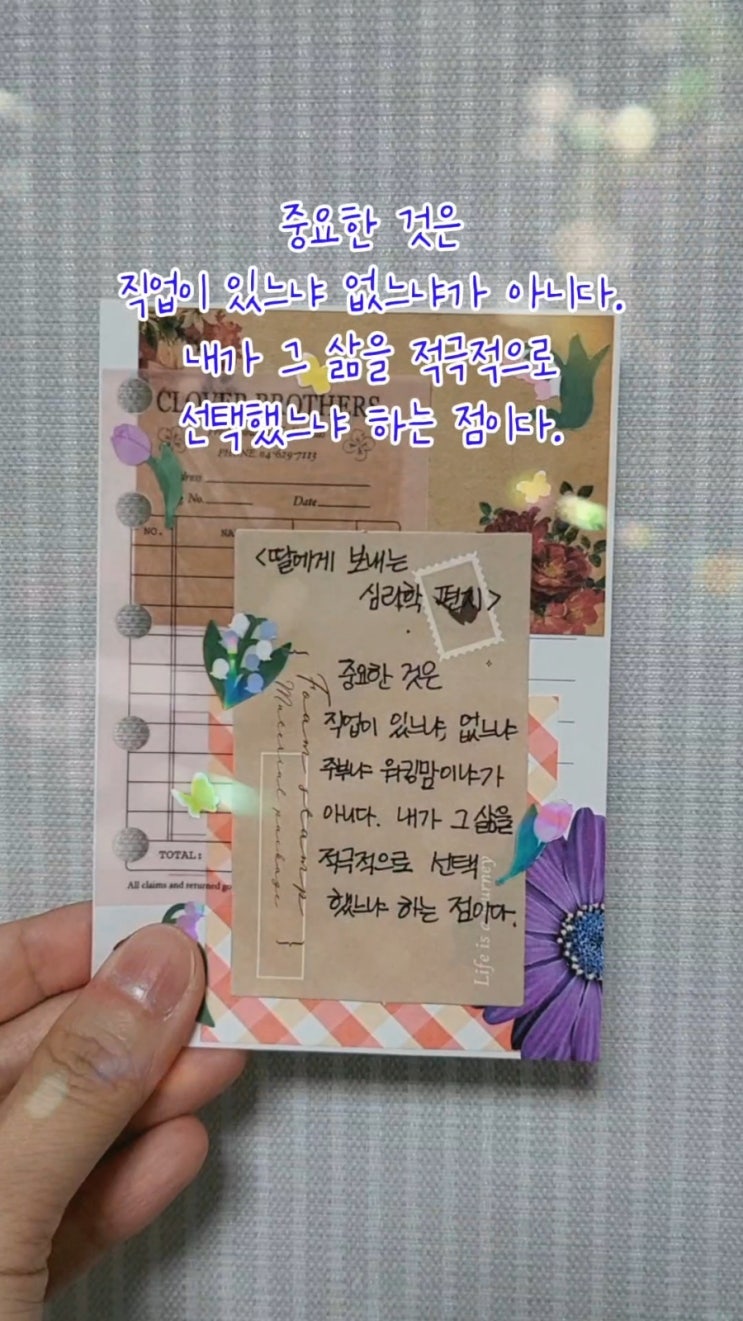 중요한 것은
직업이 있느냐 없느냐가 아니다.
내가 그 삶을 적극적으로
선택했느냐 하는 점이다.
CLOVER BROTHERS
PHONE. 04-629-7113
No. Date
NO.
<딸에게 보내는
심리학 편지>
중요한 것은
직업이 있느냐, 없느냐
주부냐 워킹맘이냐가
아니다. 내가 그 삶을
적극적으로 선택
했느냐 하는 점이다.
{ Foam stamp
Material package }
Life is a journey
TOTAL:
All claims and returned